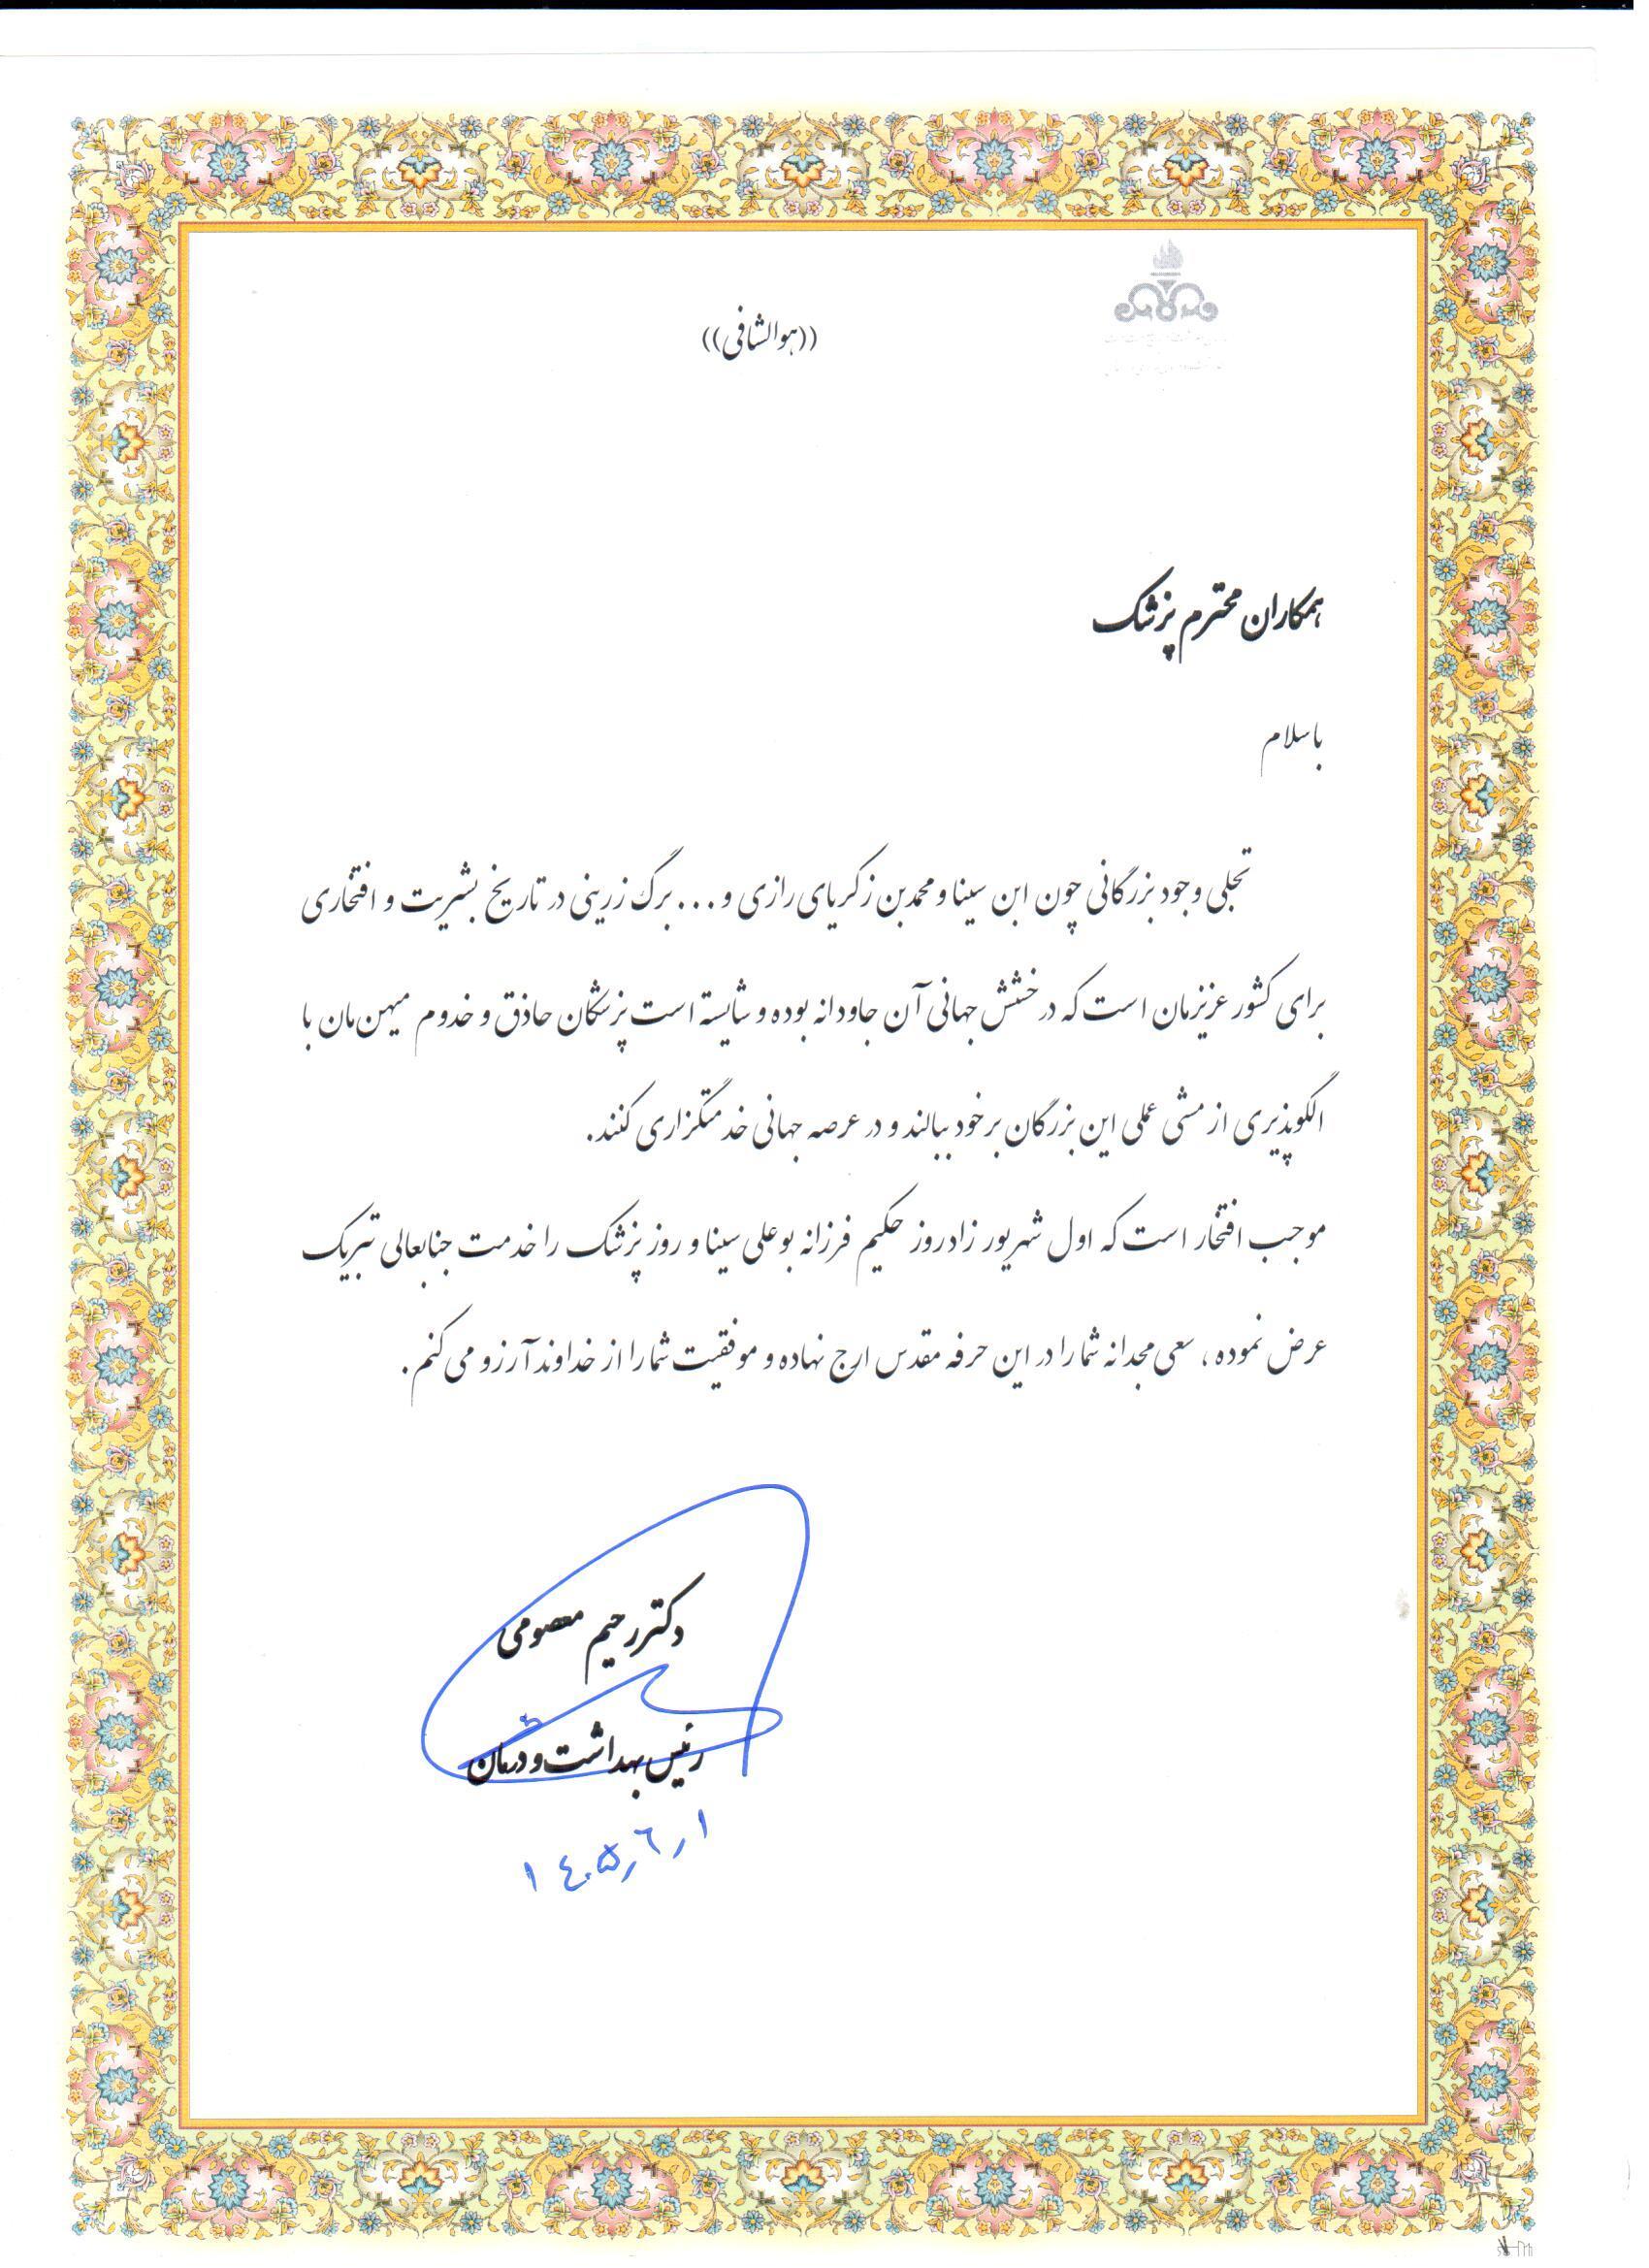 ((هوالشافی))
همکاران محترم پزشک
با سلام
تجلی وجود بزرگانی چون ابن سینا و محمدبن زکریای رازی و ... برگ زرینی در تاریخ بشریت و افتخاری
برای کشور عزیزمان است که درخشش جهانی آن جاودانه بوده و شایسته است پزشکان حاذق و خدوم میهن مان با
الگوپذیری از مشی عملی این بزرگان بر خود ببالند و در عرصه جهانی خدمتگزاری کنند.
موجب افتخار است که اول شهریور زادروز حکیم فرزانه بوعلی سینا و روز پزشک را خدمت جنابعالی تبریک
عرض نموده ، سعی مجدانه شما را در این حرفه مقدس ارج نهاده و موفقیت شما را از خداوند آرزو می کنم .
دکتر رحیم معصومی
رئیس بهداشت و درمان
۱۴۰۵٫۶٫۱